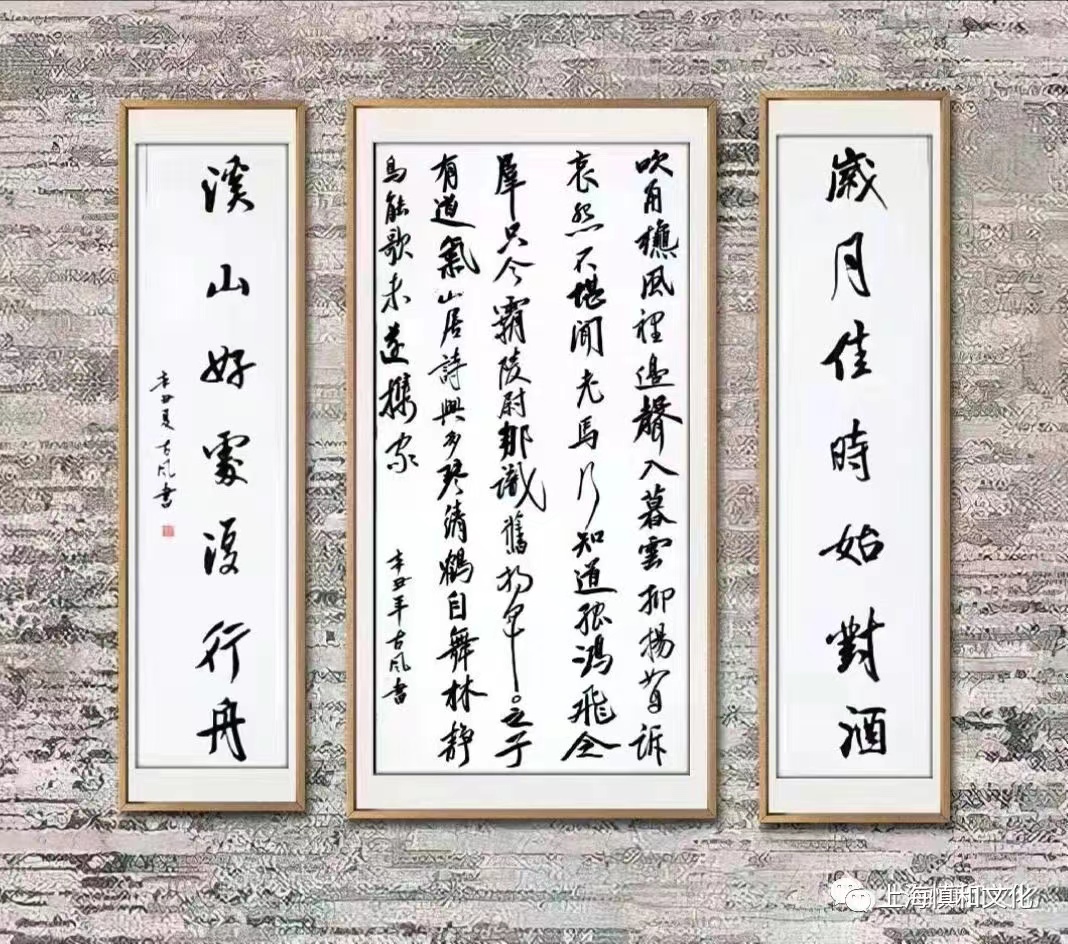 歲月佳時始對酒
吹角樵風裡邊聲入暮雲抑揚訴
哀怨不堪聞老馬行知道孤鴻飛
羣只今霸陵尉那識舊將軍。之子
有道氣山居詩興多琴清鶴自舞林靜
鳥能歌未遂攜家
辛丑年古風書
溪山好處行舟
辛丑夏古風書
上海慎和文化